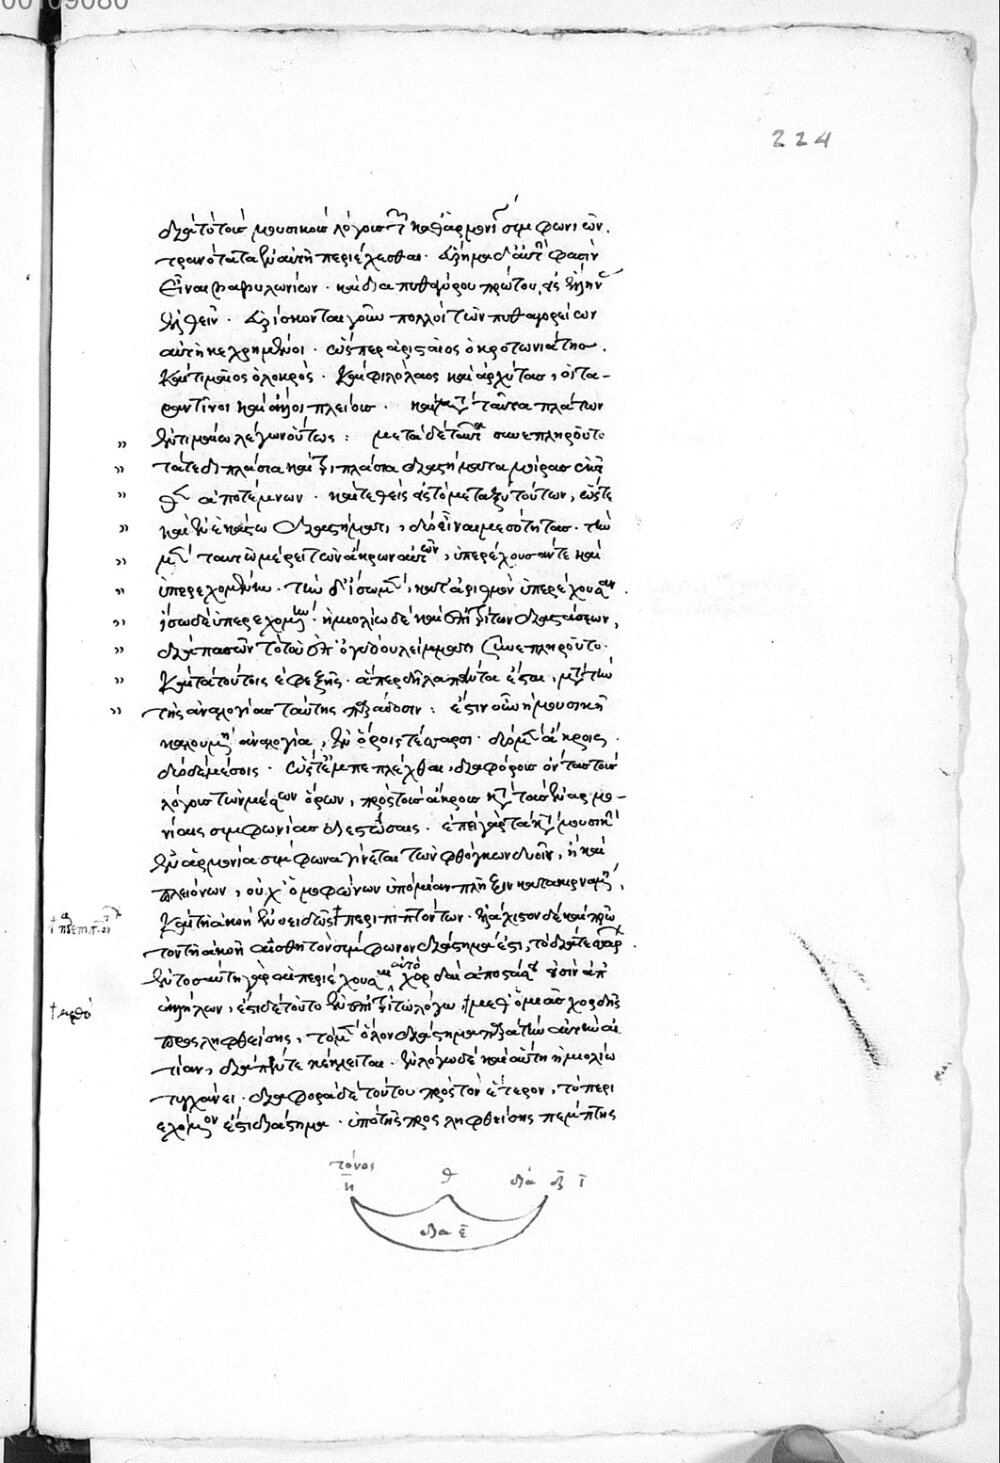 00109080
224
διὰ τὸ τοὺς μουσικοὺς λόγους τῶν καθ' ἁρμονίαν συμφωνιῶν
τρανότατα ἐν αὐτῇ περιέχεσθαι. εὕρημα δ' αὐτήν φασιν
εἶναι βαβυλωνίων. καὶ διὰ πυθαγόρου πρώτου εἰς ἕλληνας
ἐλθεῖν. εὑρίσκονται γοῦν πολλοὶ τῶν πυθαγορείων
αὐτῇ κεχρημένοι. ὥσπερ ἀρισταῖος ὁ κροτωνιάτης.
καὶ τίμαιος ὁ λοκρός. καὶ φιλόλαος καὶ ἀρχύτας, οἱ τα-
ραντῖνοι καὶ ἄλλοι πλείους. καὶ μετὰ ταῦτα πλάτων
ἐν τιμαίω λέγων οὕτως: μετὰ δὲ ταῦτα συνεπληροῦτο
τά τε διπλάσια καὶ τριπλάσια διαστήματα μοίρας ἔτι
ἀποτέμνων. καὶ τιθεὶς εἰς τὸ μεταξὺ τούτων, ὥστε
καὶ ἐν ἑκάστω διαστήματι, δύο εἶναι μεσότητας. τὴν
μὲν ταυτῶ μέρει τῶν ἄκρων αὐτῶν, ὑπερέχουσάν τε καὶ
ὑπερεχομένην. τὴν δ' ἴσω μὲν, κατ' ἀριθμὸν ὑπερέχουσαν.
ἴσω δὲ ὑπερεχομένην. ἡμιολίω δὲ καὶ ἐπιτρίτων διαστάσεων,
διαπασῶν τὸ τοῦ ἐπ' ὀγδόου λείμματι συνεπληροῦτο.
καὶ τὰ τούτοις ἐφεξῆς. ἅπερ δῆλα πάντα ἔσται, μετὰ τὴν
τῆς ἀναλογίας ταύτης παράδοσιν: ἔστιν οὖν ἡ μουσικὴ
καλουμένη ἀναλογία, ἐν ὅροις τέσσαρσι. δυσὶ μὲν ἄκροις.
δυσὶ δὲ μέσοις. ὥστε ἐμπεπλέχθαι, διαφόρους ὄντας τοὺς
λόγους τῶν μέσων ὅρων, πρὸς τοὺς ἄκρους κατὰ τὰς ἐν ἁρμο-
νίαις συμφωνίας διεστώσαις. ἐπεὶ γὰρ τὰ κατὰ μουσικὴν
ἐν ἁρμονία σύμφωνα γίνεται τῶν φθόγγων δυοῖν, ἢ καὶ
πλειόνων, οὐχ' ὁμοφώνων ὑπὸ μίαν πλῆξιν κατακιρναμένων,
καὶ τῆ ἀκοῆ ἑνοειδῶς περιπιπτόντων. ἐλάχιστον δὲ καὶ πρῶ
τον τῆ ἀκοῆ αἰσθητὸν σύμφωνον διάστημά ἐστι, τὸ διὰ τεσσάρων
ἐν τοσαύτη γὰρ αἱ περιέχουσαι αὐτὸ χορδαὶ ἀποστάσει εἰσὶν ἀπ'
ἀλλήλων, ἔστι δὲ τοῦτο ἐν ἐπιτρίτω λόγω, μεθ' ὃ μιᾶς χορδῆς
προσληφθείσης, τὸ μὲν ὅλον διάστημα παρὰ τὴν αὐτὴν αἰ
τίαν, διὰ πέντε κέκληται. ἐν λόγω δὲ καὶ αὕτη ἡμιολίω
τυγχάνει. διαφορὰ δὲ τούτου πρὸς τὸν ἕτερον, τὸ περι
εχόμενον ἐστὶ διάστημα. ὑπὸ τῆς προσληφθείσης πέμπτης
τόνος
η θ διὰ δ ιβ
δια ε